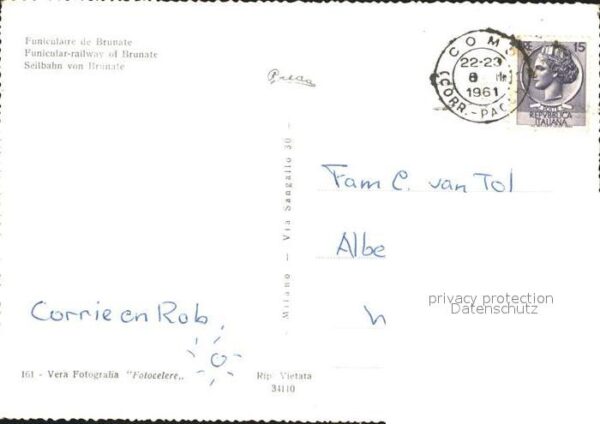 Funiculaire de Brunate
Funicular-railway of Brunate
Seilbahn von Brunate
COMO
22-23
8
1961
(CORR.-PAC
15
REPVBBLICA
ITALIANA
Milano - Via Sangallo 30 -
Fam C. van Tol
Albe
privacy protection
Datenschutz
Corrie en Rob.
161 - Vera Fotografia "Fotocelere„
Rip. Vietata
34110